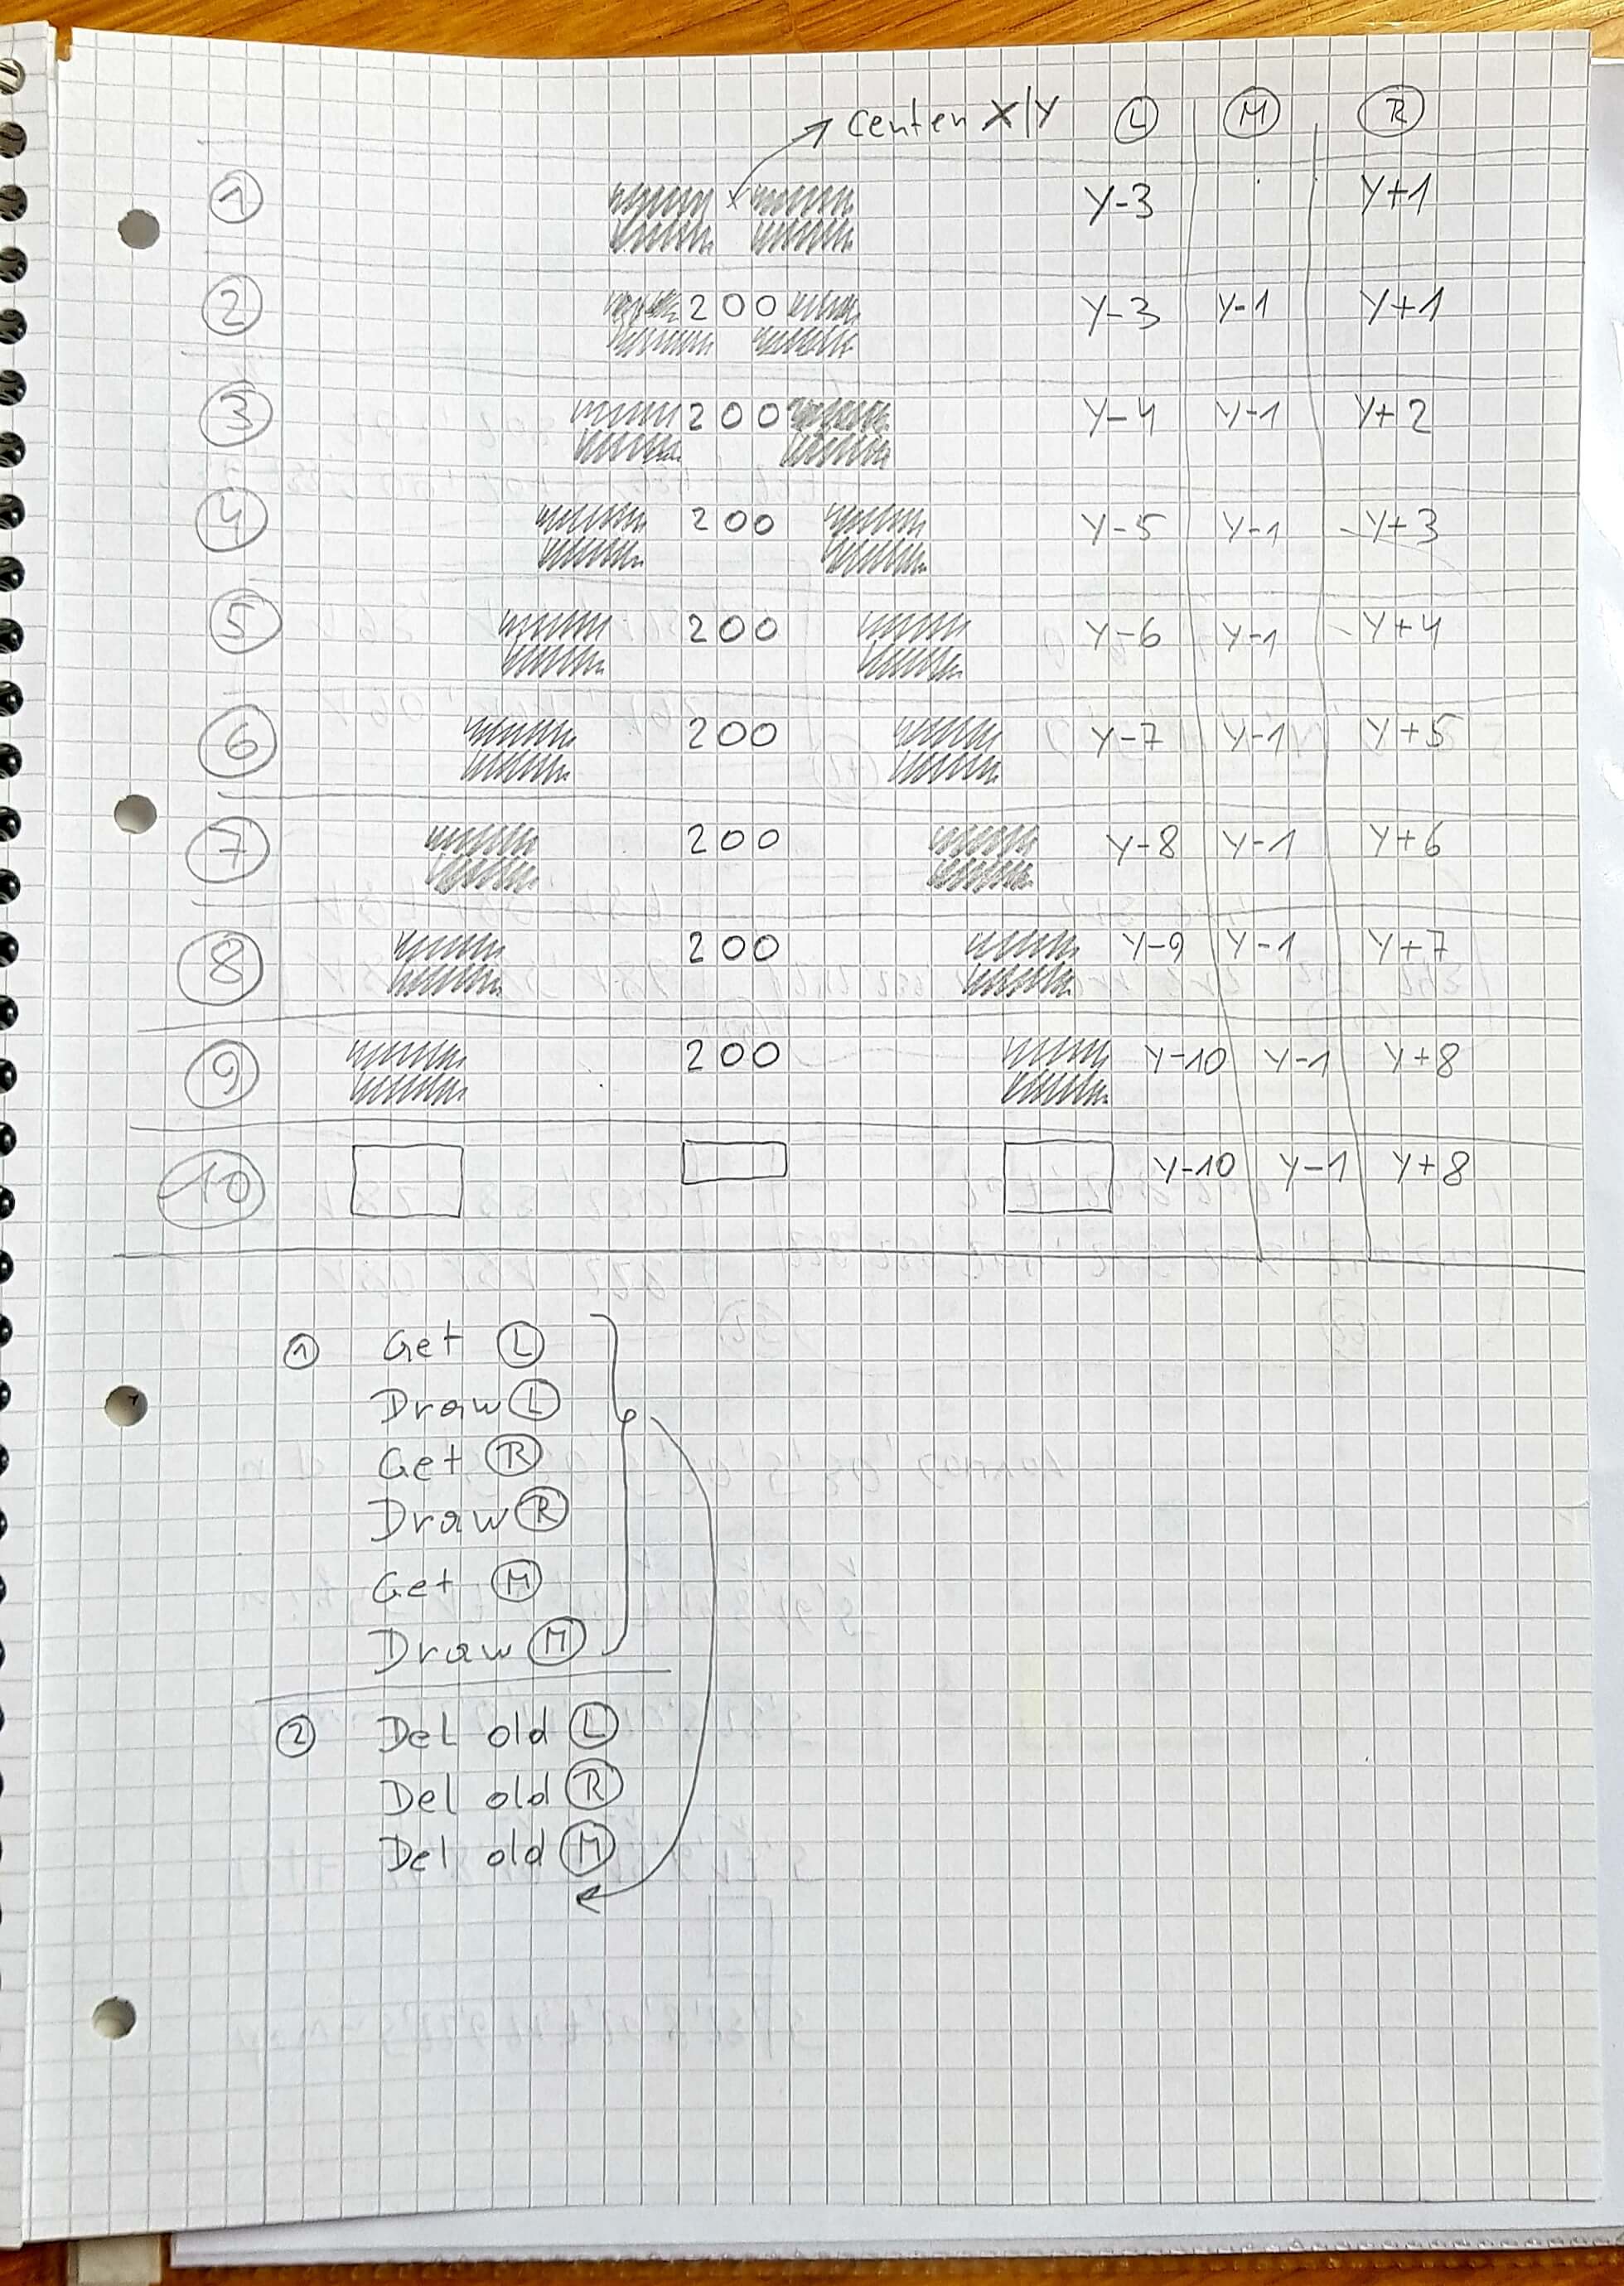 center X/Y L M R
1 Y-3 Y+1
2 200 Y-3 Y-1 Y+1
3 200 Y-4 Y-1 Y+2
4 200 Y-5 Y-1 Y+3
5 200 Y-6 Y-1 Y+4
6 200 Y-7 Y-1 Y+5
7 200 Y-8 Y-1 Y+6
8 200 Y-9 Y-1 Y+7
9 200 Y-10 Y-1 Y+8
10 Y-10 Y-1 Y+8
1 Get L
Draw L
Get R
Draw R
Get M
Draw M
2 Del old L
Del old R
Del old M